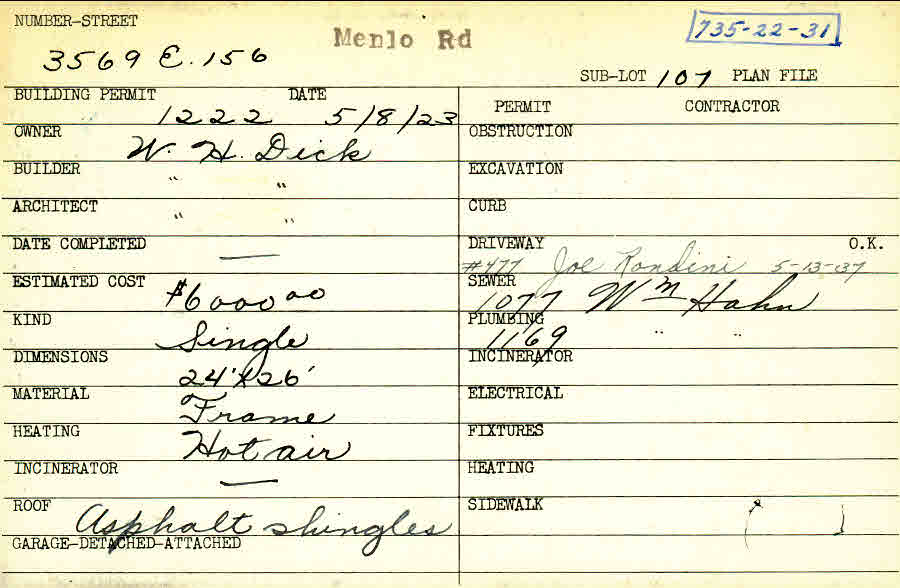 NUMBER-STREET
3569 E. 156
Menlo Rd
735-22-31
SUB-LOT 107 PLAN FILE
BUILDING PERMIT DATE
1222 5/8/23
OWNER
W. H. Dick
BUILDER
" "
ARCHITECT
" "
DATE COMPLETED
—
ESTIMATED COST
$6000 00
KIND
Single
DIMENSIONS
24' x 26'
MATERIAL
Frame
HEATING
Hot air
INCINERATOR
—
ROOF
Asphalt shingles
GARAGE-DETACHED-ATTACHED
PERMIT CONTRACTOR
OBSTRUCTION
EXCAVATION
CURB
DRIVEWAY O.K.
#477 Joe Rondini 5-13-37
SEWER
1077 Wm Hahn
PLUMBING
1169 "
INCINERATOR
ELECTRICAL
FIXTURES
HEATING
SIDEWALK